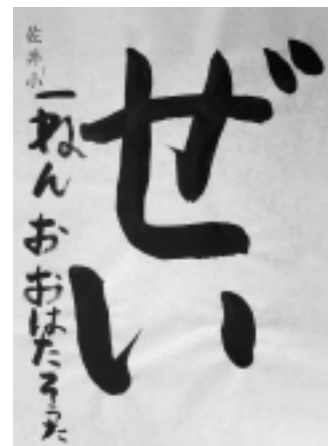 ぜい
佐井小 一ねん おおはたそうた